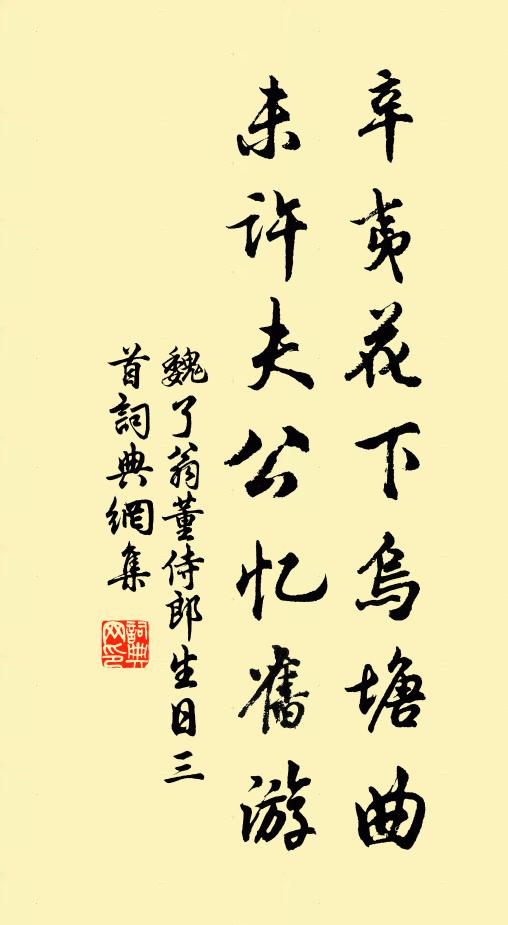 辛夷花下乌塘曲
未许夫公忆旧游
魏了翁董侍郎生日三
首詞典網集
詞典
网印